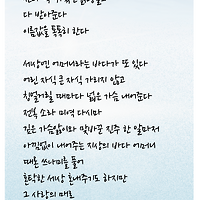 다 받아준다
이름값을 톡톡히 한다

세상엔 어머니라는 바다가 또 있다
어린 자식 큰 자식 가리지 않고
칭얼거릴 때마다 넓은 가슴 내어준다
전복 소라 미역 다시마
깊은 가슴앓이와 맞바꾼 진주 한 알마저
아낌없이 내어주는 지상의 바다 어머니
때론 쓰나미를 몰어
혼탁한 세상 혼내주기도 하지만
그 사랑의 매로